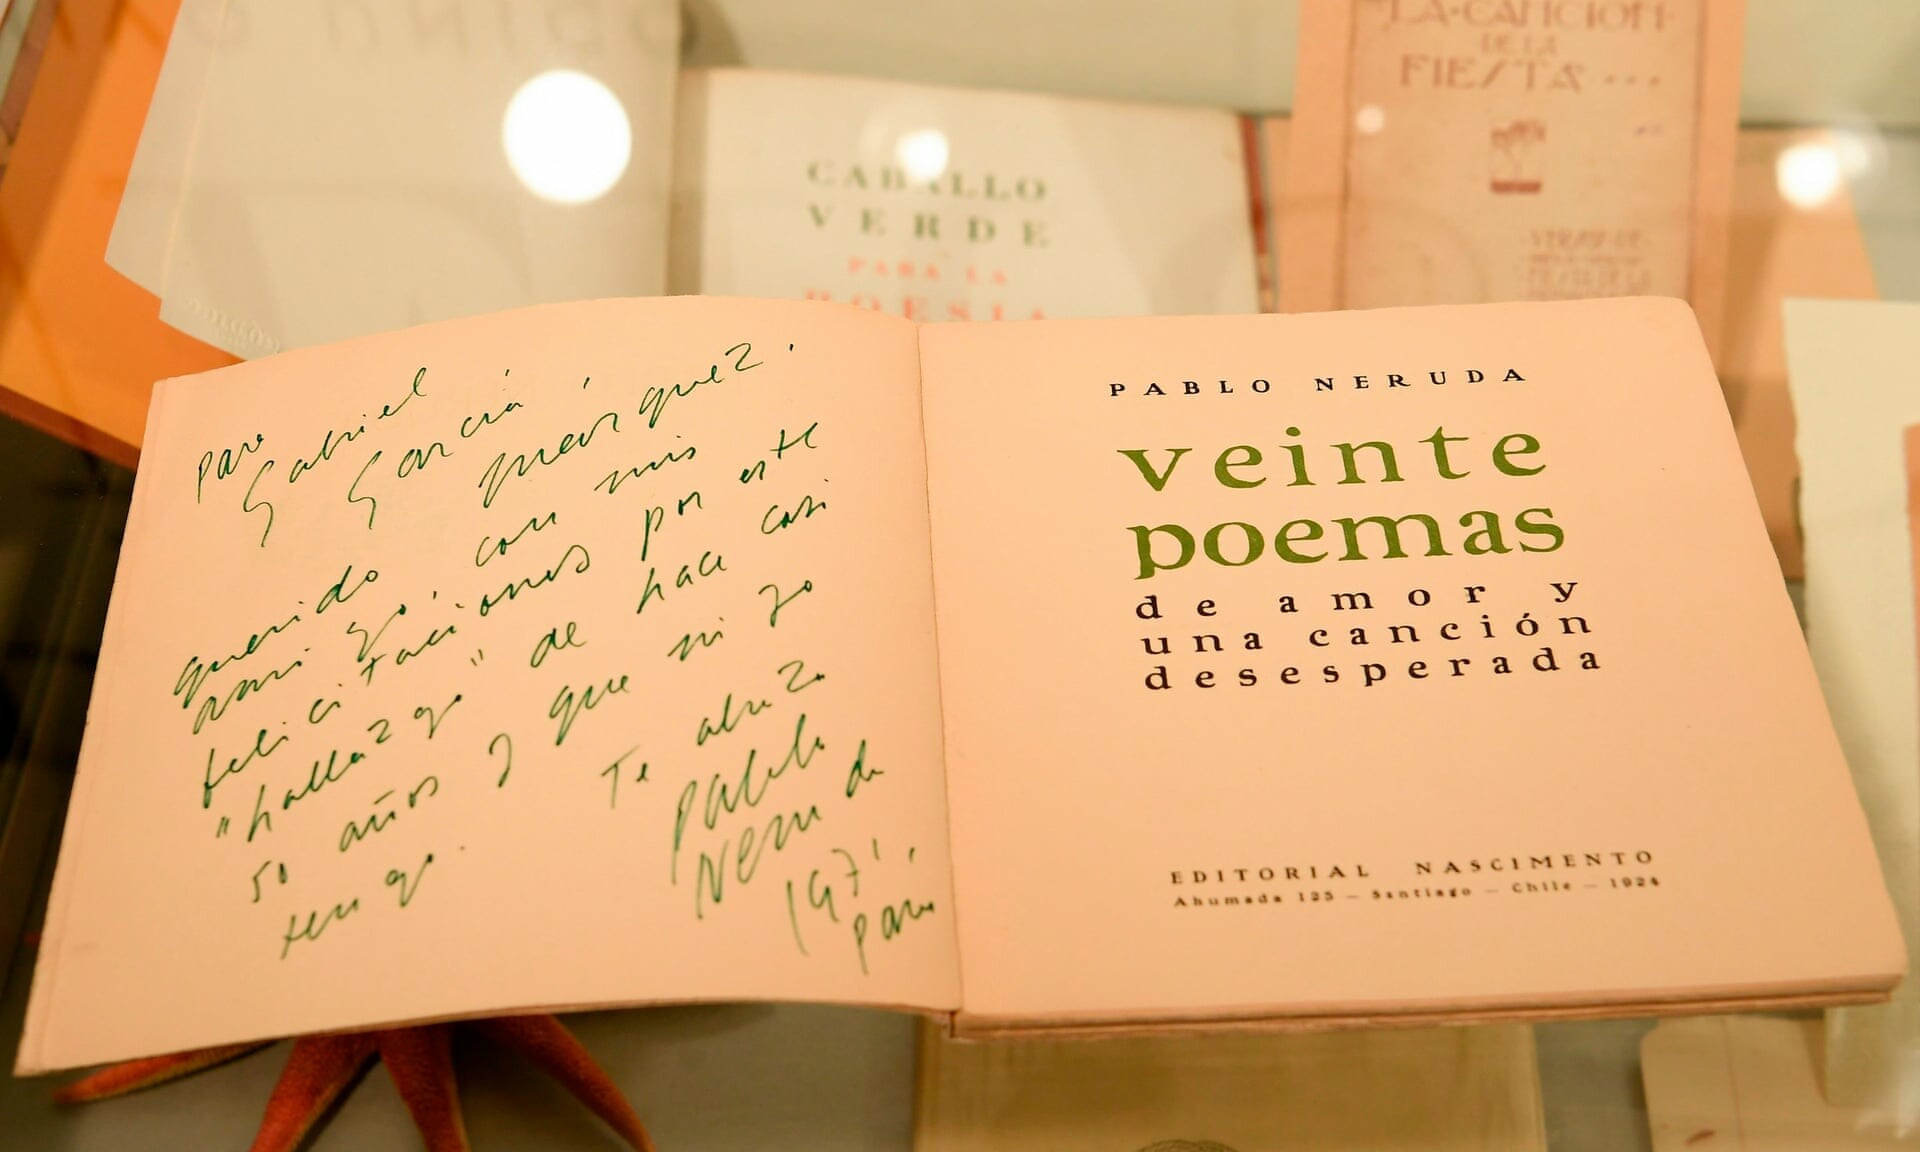 CABALLO
VERDE
PARA LA
POESIA
LA·CANCION·
DE LA
FIESTA...
para
Gabriel
García
Marquez.
querido
amigo, con mis
felicitaciones por este
"hallazgo" de hace casi
50 años y que ni yo
tengo.
Te abraza
Pablo
Neruda
1971
PABLO NERUDA
veinte
poemas
de amor y
una canción
desesperada
EDITORIAL NASCIMENTO
Ahumada 125 — Santiago — Chile — 1924